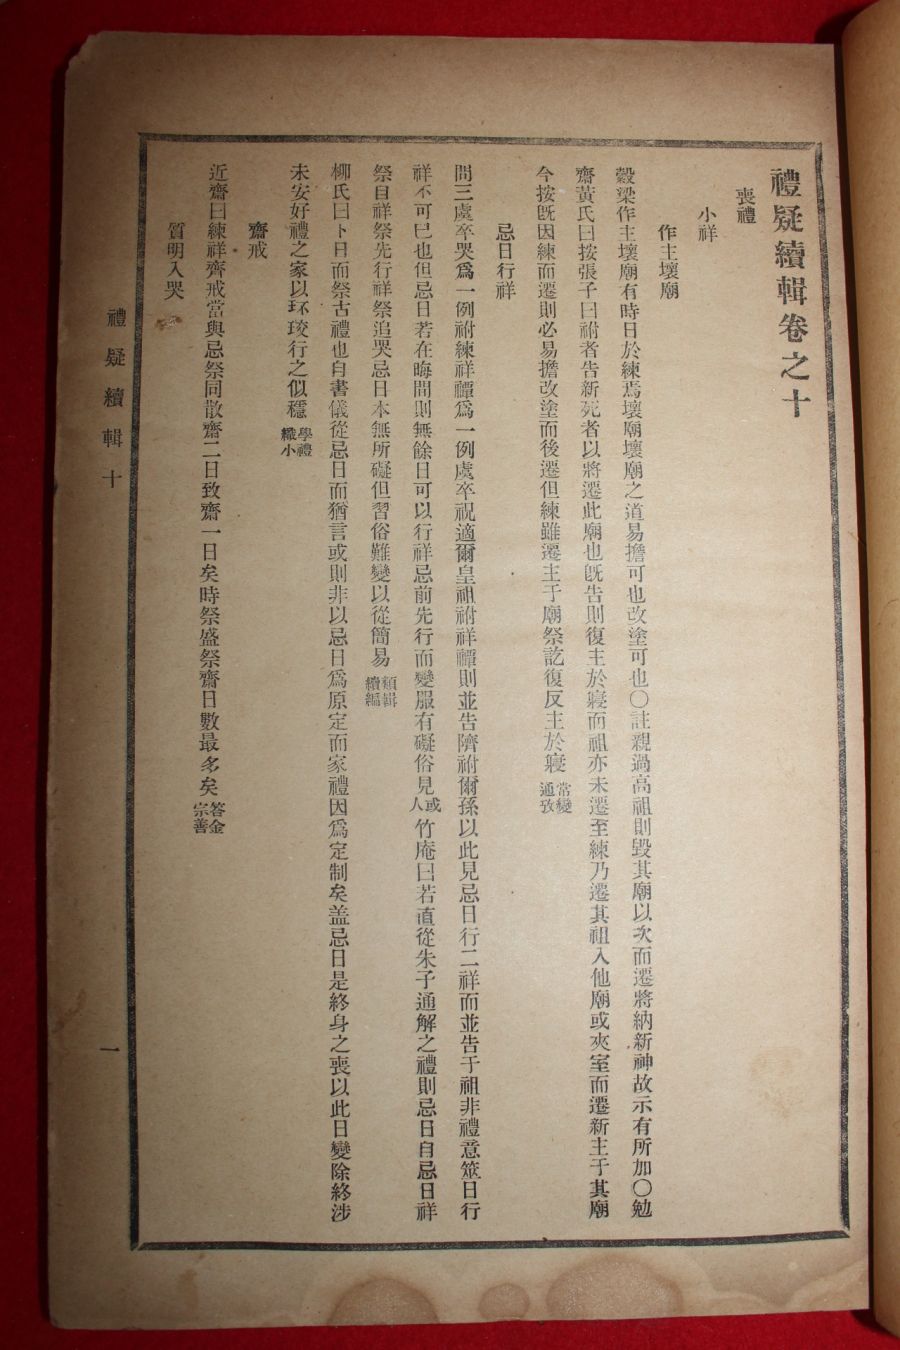 禮疑續輯卷之十
喪禮
小祥
作主壞廟
穀梁作主壞廟有時日於練焉壞廟壞廟之道易擔可也改塗可也〇註親過高祖則毀其廟以次而遷將納新神故示有所加〇勉
齋黃氏曰按張子曰祔者告新死者以將遷此廟也旣告則復主於寢而祖亦未遷至練乃遷其祖入他廟或夾室而遷新主于其廟
今按旣因練而遷則必易擔改塗而後遷但練雖遷主于廟祭訖復反主於寢 常變通攷
忌日行祥
問三虞卒哭爲一例祔練祥禫爲一例虞卒祝適爾皇祖祔祥禫則並告隮祔爾孫以此見忌日行二祥而並告于祖非禮意筮日行
祥不可已也但忌日若在晦間則無餘日可以行祥忌前先行而變服有礙俗見 或人 竹庵曰若直從朱子通解之禮則忌日自忌日祥
祭自祥祭先行祥祭追哭忌日本無所礙但習俗難變以從簡易 類輯續編
柳氏曰卜日而祭古禮也自書儀從忌日而猶言或則非以忌日爲原定而家禮因爲定制矣盖忌日是終身之喪以此日變除終涉
未安好禮之家以环珓行之似穩 學禮
小
齋戒
近齋曰練祥齊戒當與忌祭同散齋二日致齋一日矣時祭盛祭齋日數最多矣 答金宗善
質明入哭
禮疑續輯 十
一